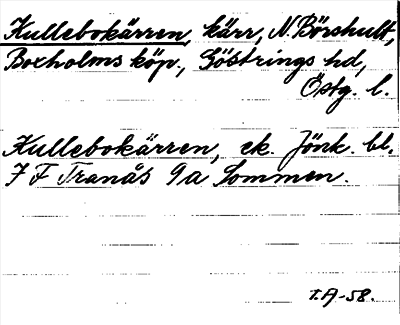 Kullebokärren, kärr, N. Börshult,
Boxholms köp., Göstrings hd,
Östg. l.
Kullebokärren, ek. Jönk. bl.
7 F Tranås 9a Sommen.
I.A-58.